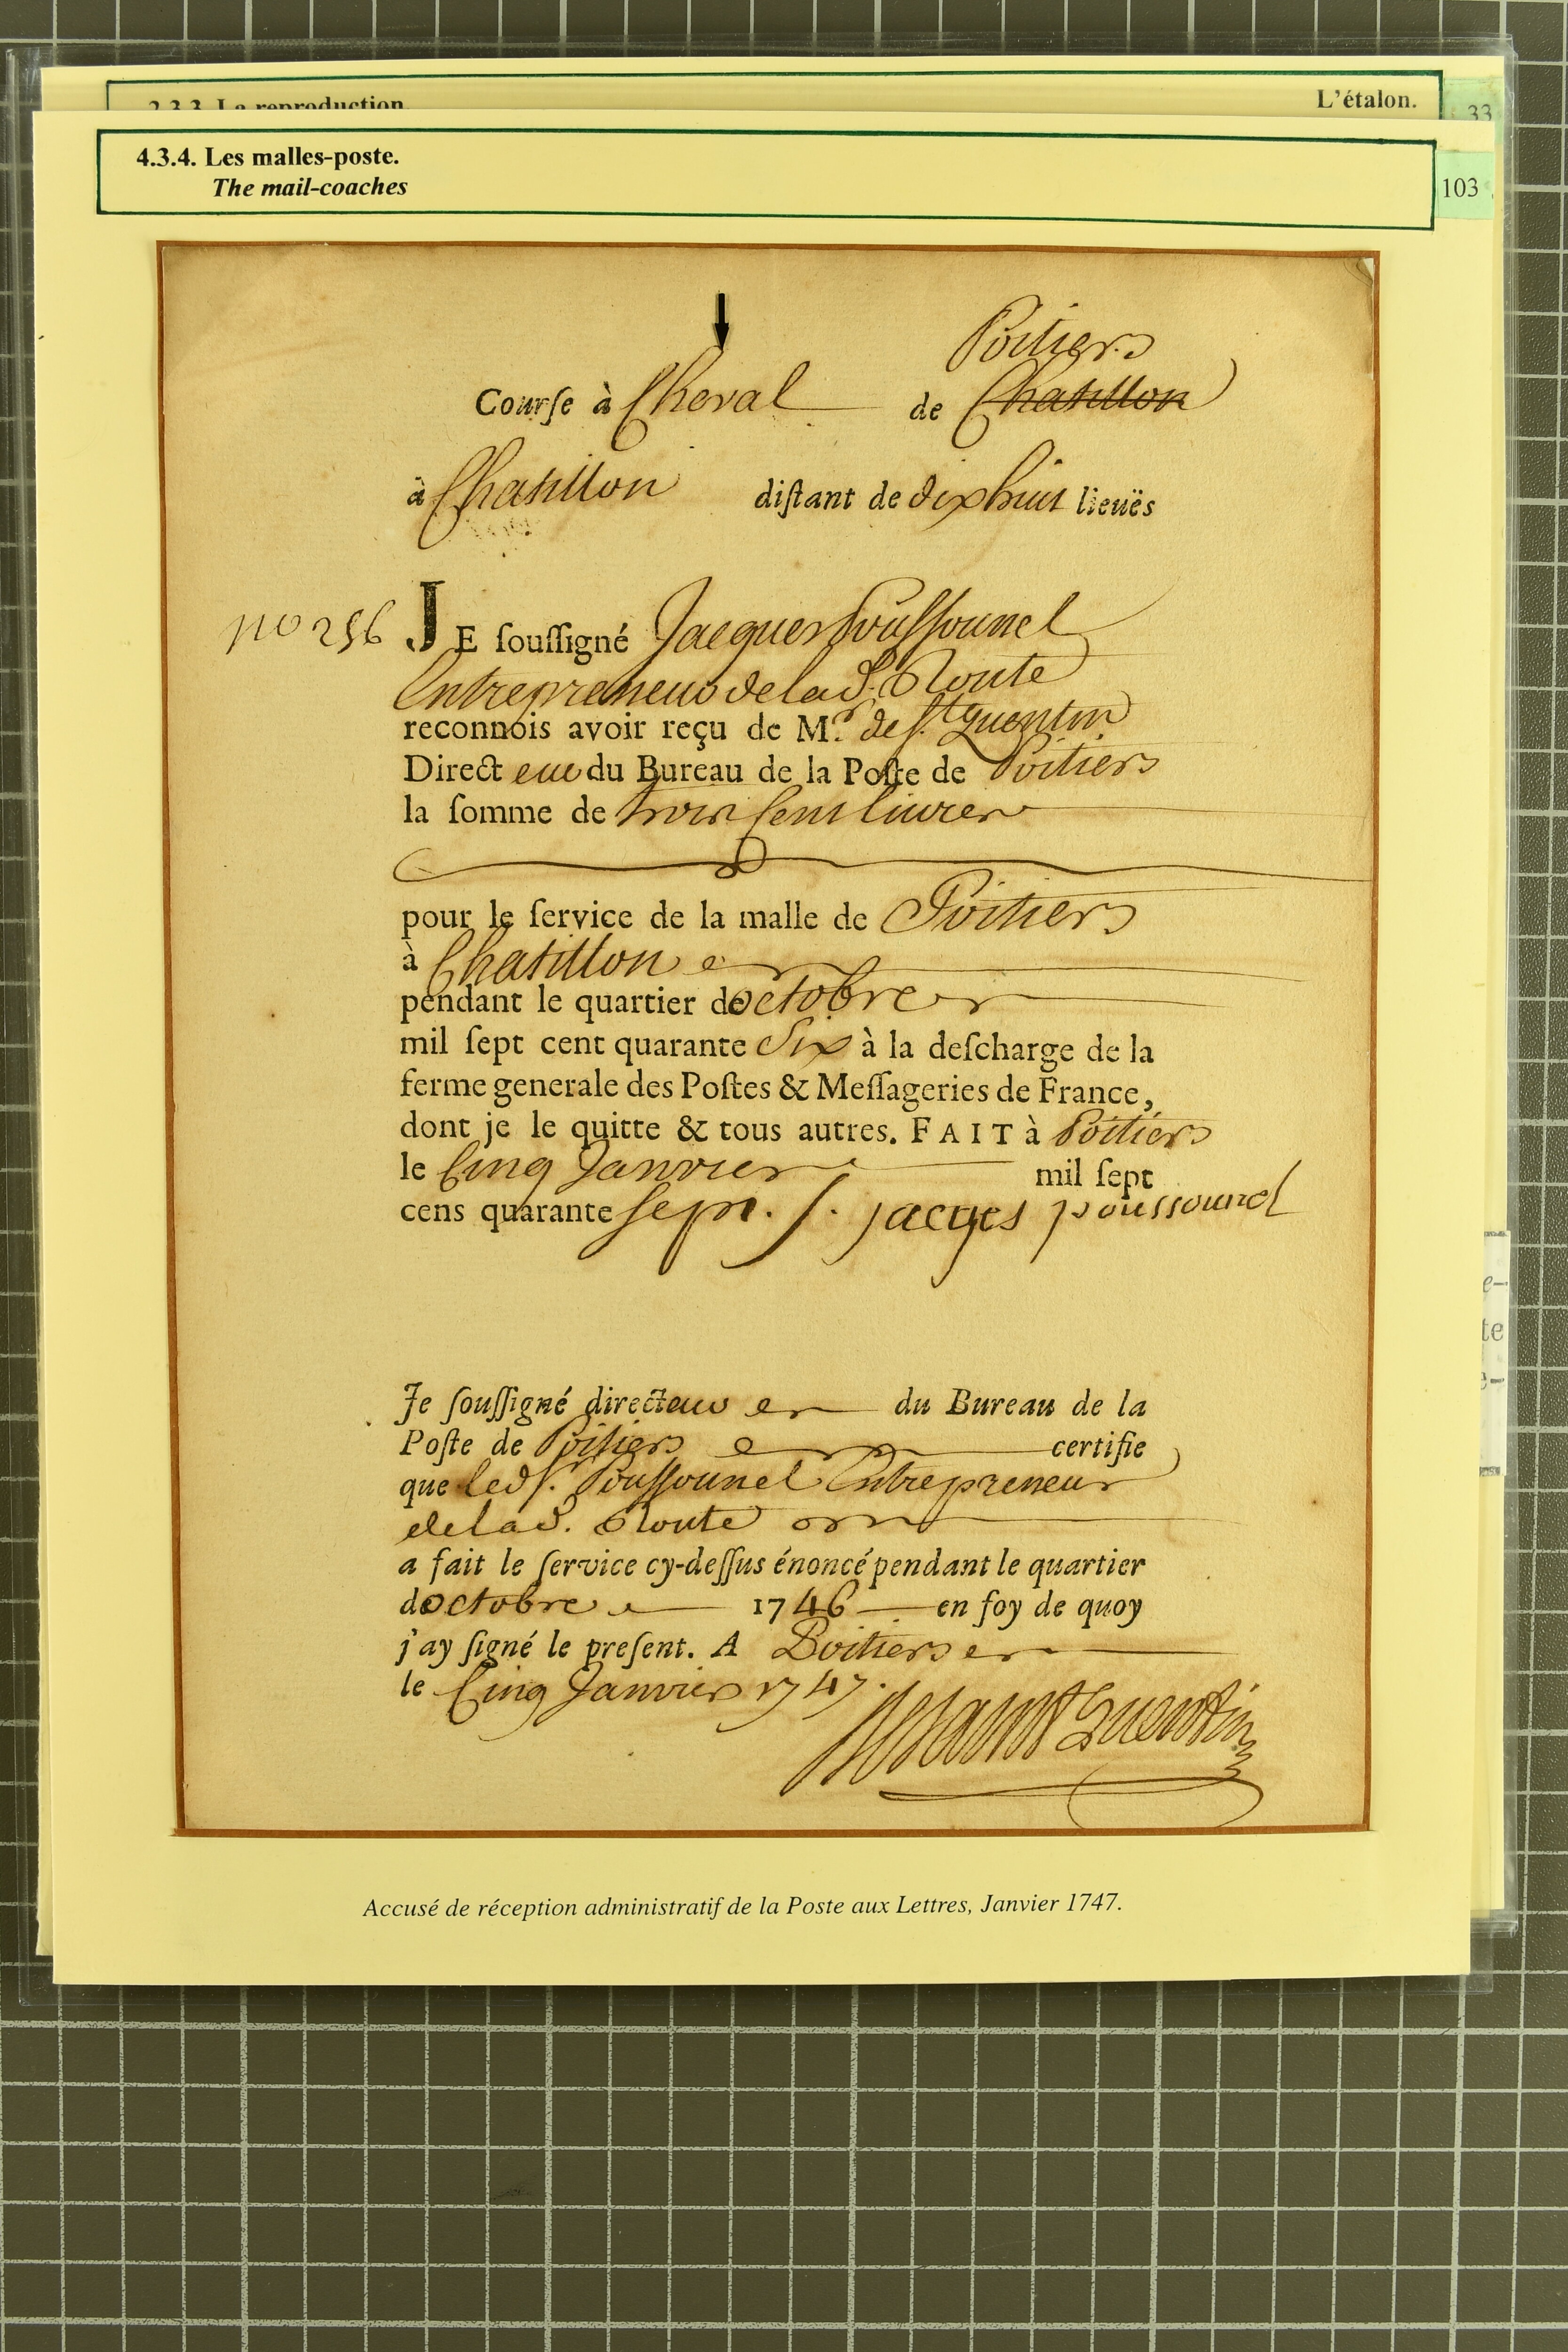 L'étalon.
33
4.3.4. Les malles-poste.
The mail-coaches
103
Poitiers
Courſe à Cheval de Chatillon
à Chatillon diſtant de dixhuit lieuës
no 256 JE ſouſſigné Jacques Pouſſounel
Entrepreneur de lad. Route
reconnois avoir reçu de Mr. de St. Quentin
Directeur du Bureau de la Poſte de Poitiers
la ſomme de trois Cent livres
pour le ſervice de la malle de Poitiers
à Chatillon
pendant le quartier doctobre
mil ſept cent quarante Six à la deſcharge de la
ferme generale des Poſtes & Meſſageries de France,
dont je le quitte & tous autres. FAIT à Poitiers
le Cinq Janvier mil ſept
cens quarante Sept. J. jacqes poussounel
Je ſouſſigné directeur du Bureau de la
Poſte de Poitiers certifie
que led S. Pouſſounel Entrepreneur
de lad. Route
a fait le ſervice cy-deſſus énoncé pendant le quartier
doctobre 1746 en foy de quoy
j'ay ſigné le preſent. A Poitiers
le Cinq Janvier 1747.
DeSaint Quentin
Accusé de réception administratif de la Poste aux Lettres, Janvier 1747.